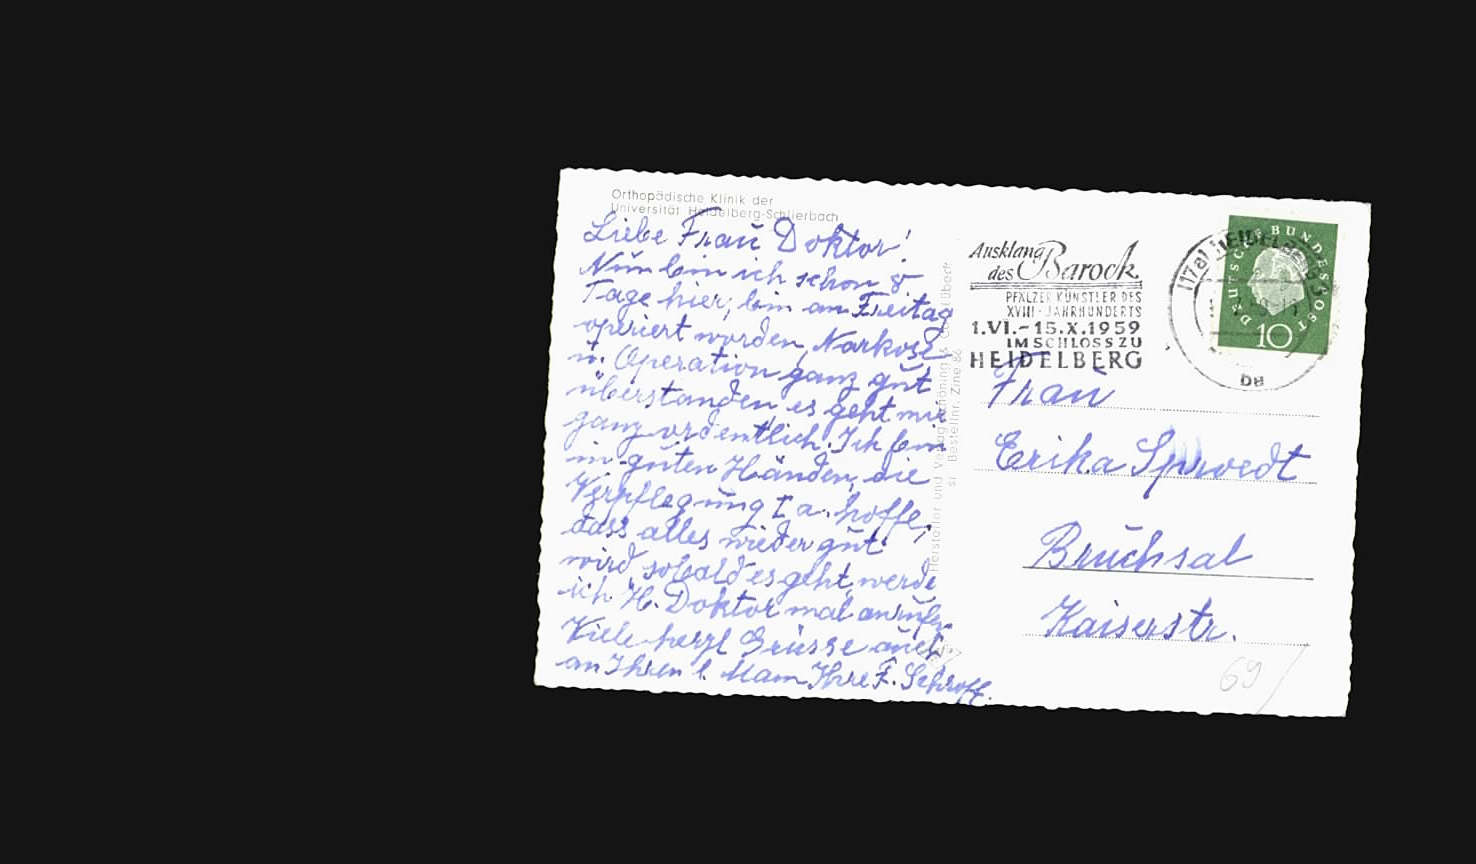 Orthopädische Klinik der
Universität Heidelberg-Schlierbach
Liebe Frau Doktor!
Nun bin ich schon 8
Tage hier, bin am Freitag
operiert worden, Narkose
u. Operation ganz gut
überstanden es geht mir
ganz ordentlich. Ich bin
in guten Händen, die
Verpflegung I a. hoffe,
dass alles wieder gut
wird sobald es geht, werde
ich H. Doktor mal anrufen.
Viele herzl Grüsse auch
an Ihren l. Mann Ihre F. Schroff.
Hersteller und Verlag Schöning & Co Lübeck
Bestellnr. Zine 86
Ausklang
des Barock
PFÄLZER KÜNSTLER DES
XVIII·JAHRHUNDERTS
1.VI.-15.X.1959
IM SCHLOSS ZU
HEIDELBERG
(17a) HEIDELBERG
ba
DEUTSCHE BUNDESPOST
10
Frau
Erika
Bruchsal
Kaiserstr.
69